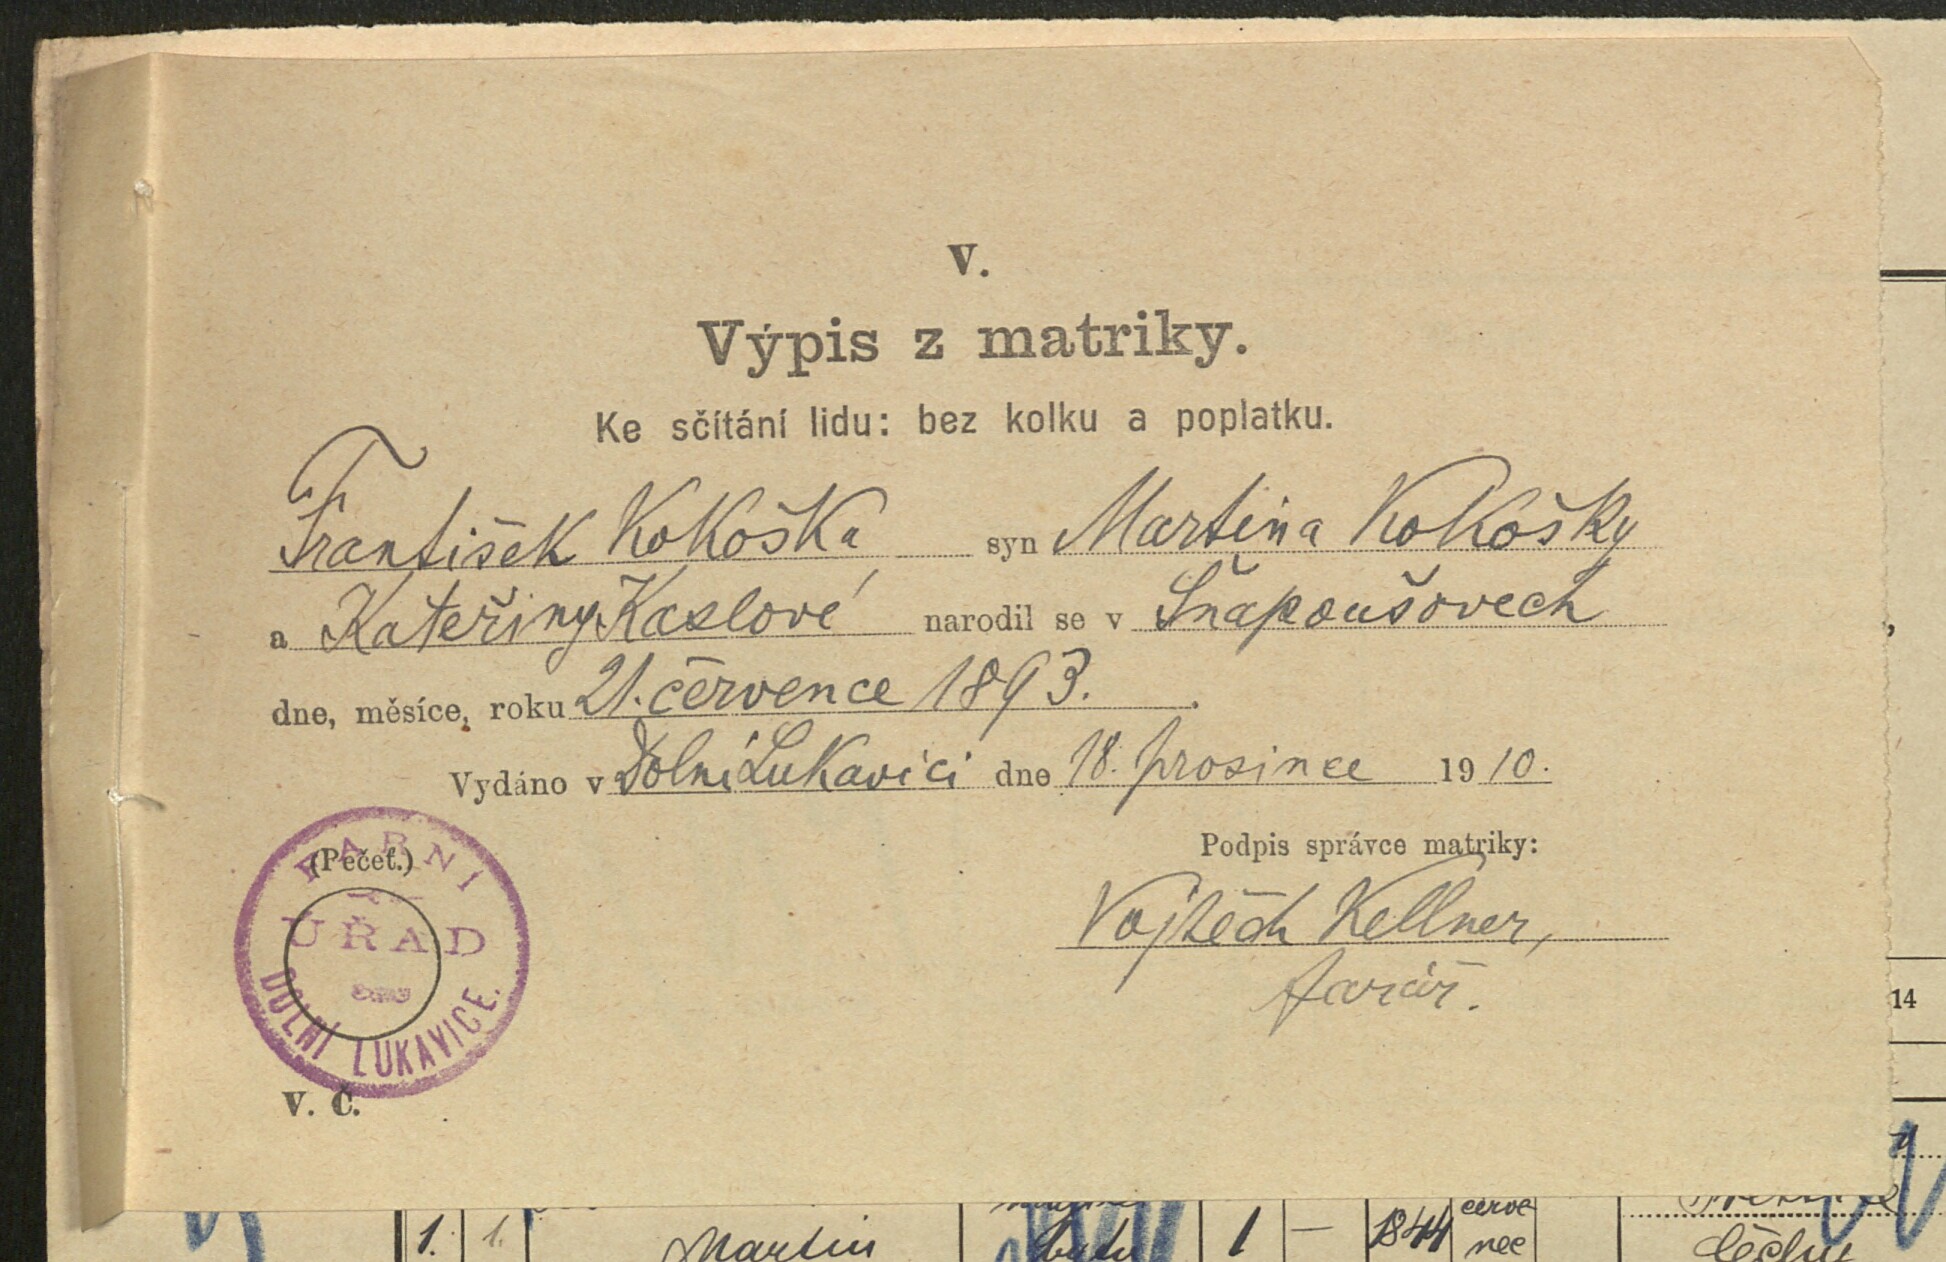 V.
Výpis z matriky.
Ke sčítání lidu: bez kolku a poplatku.
František Kokoška syn Martina Kokošky
a Kateřiny Kaslové narodil se v Šňapoušovech
dne, měsíce, roku 21. července 1893.
Vydáno v Dolní Lukavici dne 18. prosince 1910.
(Pečeť.)
FARNÍ
ÚŘAD
DOLNÍ LUKAVICE.
Podpis správce matriky:
Vojtěch Kellner,
farář.
V. Č.
14
1. 1. Martin bytu 1 — 1844 červe
nec Čechy